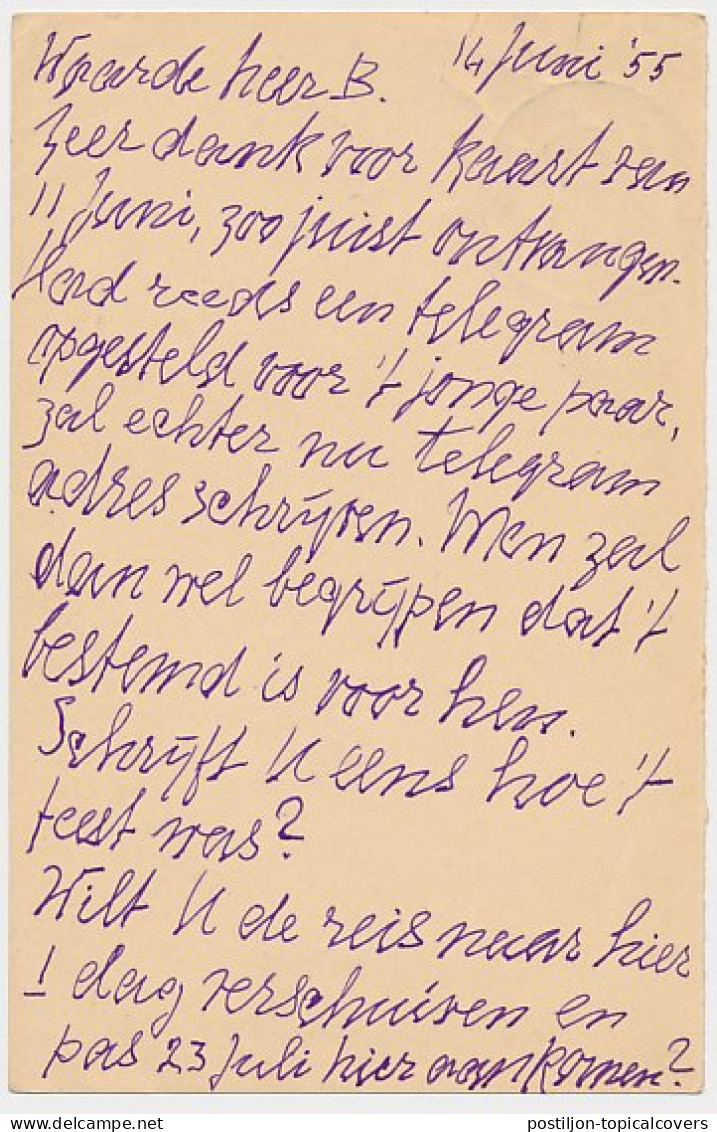 14 Juni '55
Waarde heer B.
Zeer dank voor kaart van
11 Juni, zoo juist ontvangen.
Had reeds een telegram
opgesteld voor 't jonge paar,
zal echter nu telegram
adres schrijven. Men zal
dan wel begrijpen dat 't
bestemd is voor hen.
Schrijft U eens hoe 't
feest was?
Wilt U de reis naar hier
1 dag verschuiven en
pas 23 Juli hier aankomen?
postiljon-topicalcovers